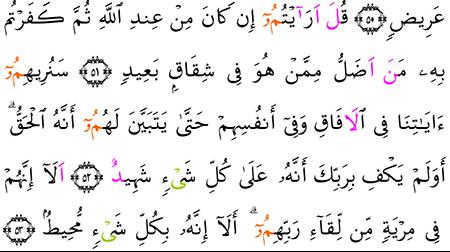 عَرِيضٍ ۝٥٠ قُلَ اَرَآيْتُمُۥٓ إِن كَانَ مِنْ عِندِ اللَّهِ ثُمَّ كَفَرْتُم
بِهِۦ مَنَ اَضَلُّ مِمَّنْ هُوَ فِى شِقَاقٍۭ بَعِيدٍ ۝٥١ سَنُرِيهِمُۥٓ
ءَايَاتِنَا فِى اَ۬لَافَاقِ وَفِىٓ أَنفُسِهِمْ حَتَّىٰ يَتَبَيَّنَ لَهُمُۥٓ أَنَّهُ الْحَقُّ ۗ
أَوَلَمْ يَكْفِ بِرَبِّكَ أَنَّهُۥ عَلَىٰ كُلِّ شَىْءٍ شَهِيدٌ ۝٥٢ اَلَآ إِنَّهُمْ
فِى مِرْيَةٍ مِّن لِّقَآءِ رَبِّهِمُۥٓ ۗ أَلَآ إِنَّهُۥ بِكُلِّ شَىْءٍ مُّحِيطٌ ۝٥٣